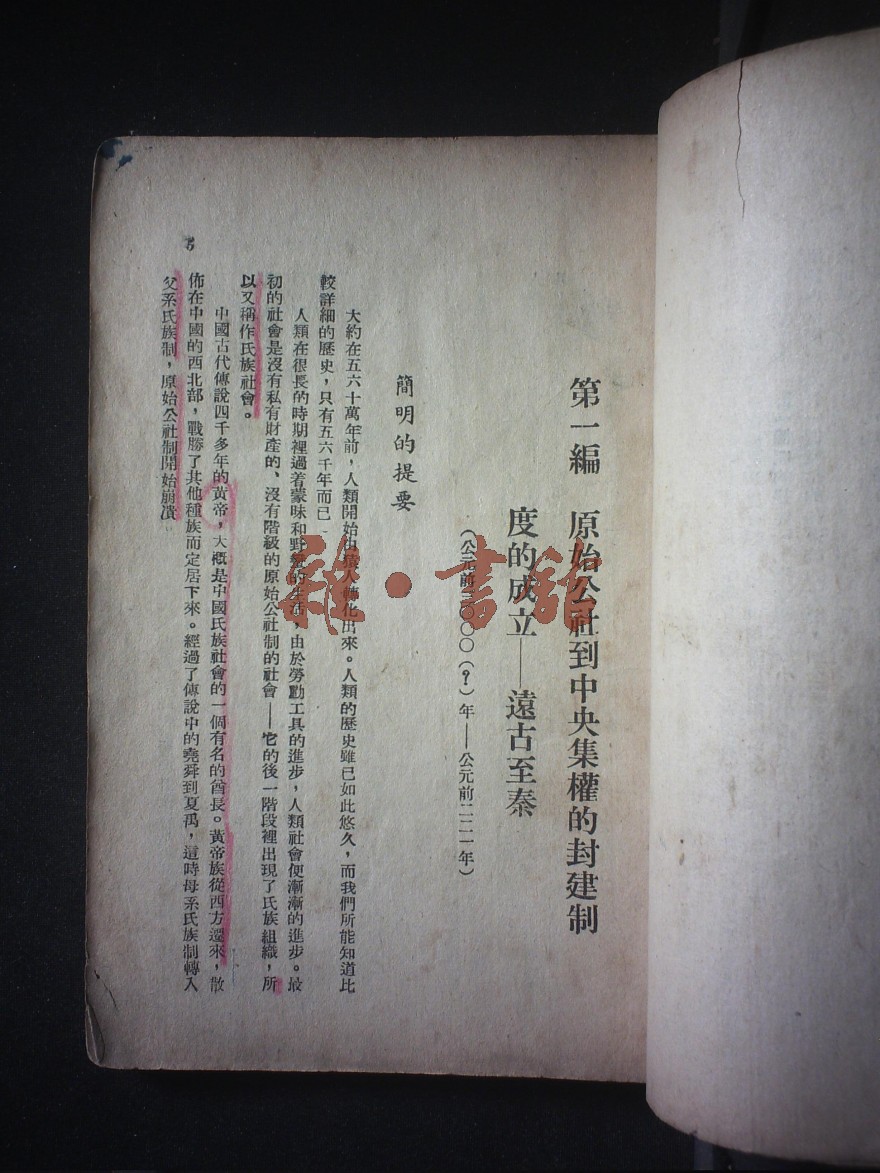 第一編　原始公社到中央集權的封建制
度的成立——遠古至秦
（公元前三〇〇〇（？）年——公元前二二一年）
簡明的提要
大約在五六十萬年前，人類開始由猿人轉化出來。人類的歷史雖已如此悠久，而我們所能知道比
較詳細的歷史，只有五六千年而已
人類在很長的時期裡過着蒙昧和野蠻的生活，由於勞動工具的進步，人類社會便漸漸的進步。最
初的社會是沒有私有財產的、沒有階級的原始公社制的社會——它的後一階段裡出現了氏族組織，所
以又稱作氏族社會。
中國古代傳說四千多年的黃帝，大概是中國氏族社會的一個有名的酋長。黃帝族從西方遷來，散
佈在中國的西北部，戰勝了其他種族而定居下來。經過了傳說中的堯舜到夏禹，這時母系氏族制轉入
父系氏族制，原始公社制開始崩潰
雜·書館